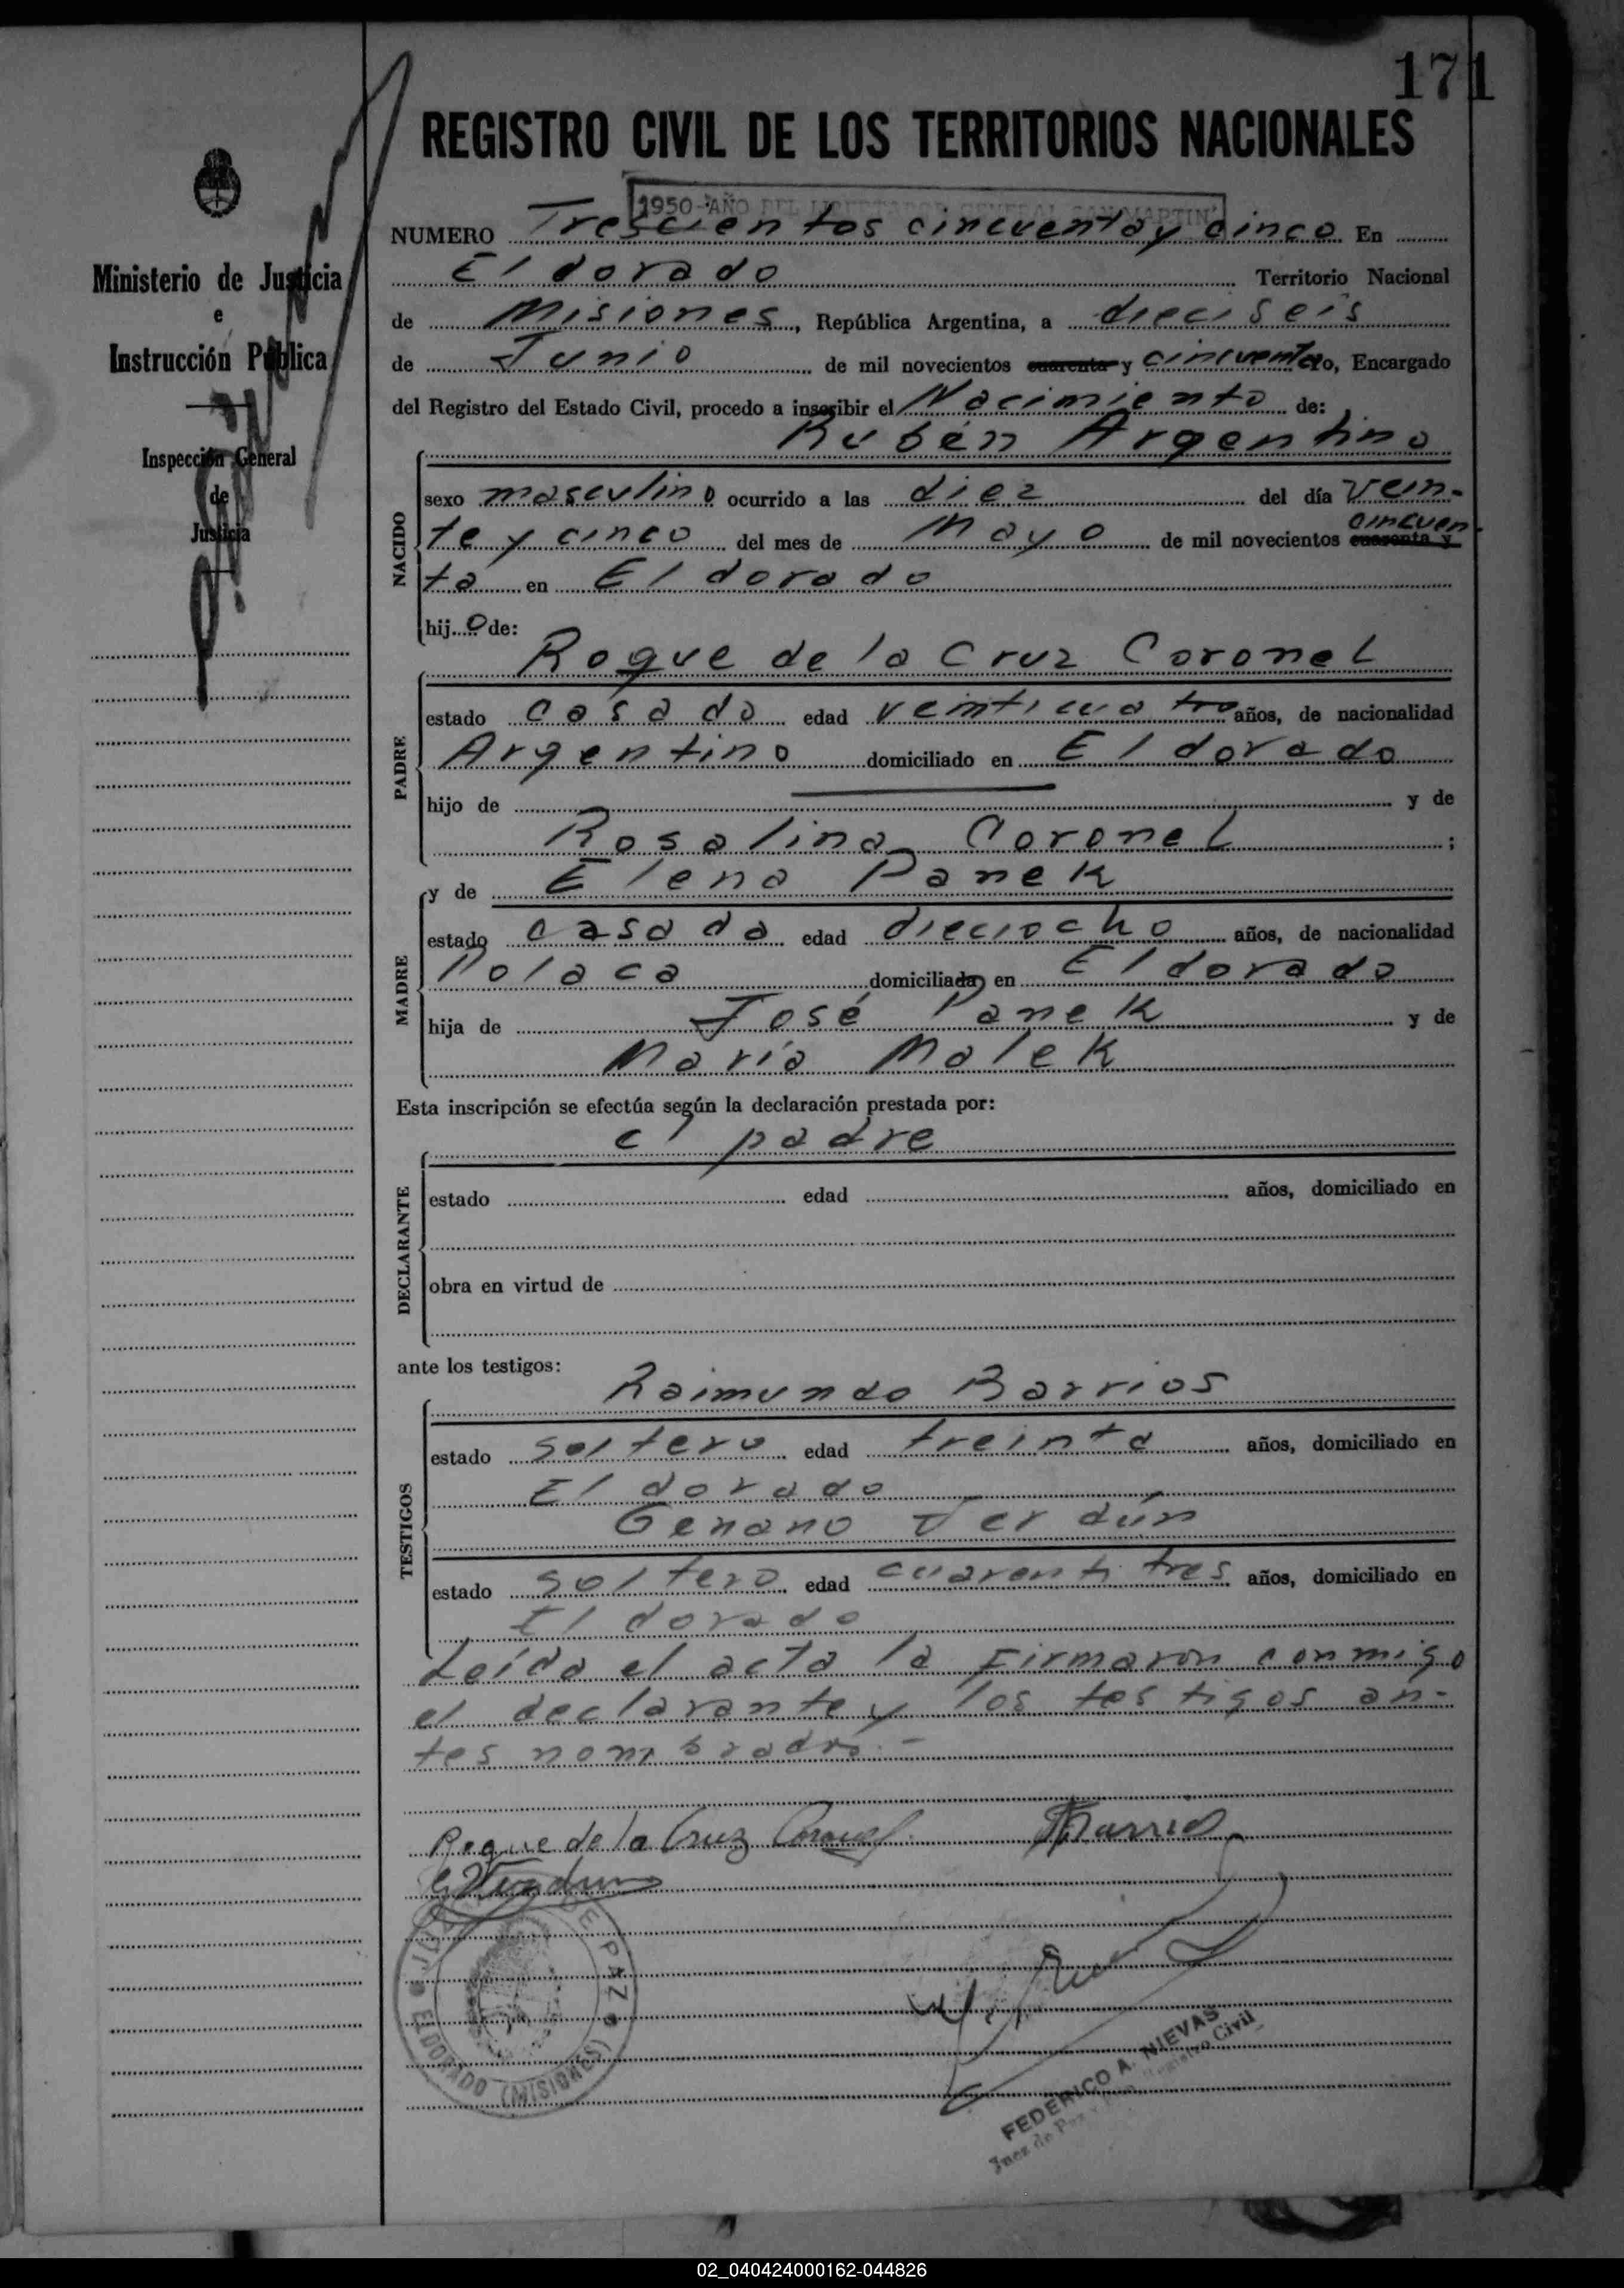 171
REGISTRO CIVIL DE LOS TERRITORIOS NACIONALES
1950-AÑO DEL LIBERTADOR GENERAL SAN MARTIN
NUMERO Trescientos cincuenta y cinco En
Eldorado Territorio Nacional
de Misiones, República Argentina, a dieciseis
de Junio de mil novecientos cuarenta y cincuenta yo, Encargado
del Registro del Estado Civil, procedo a inscribir el Nacimiento de:
Rubén Argentino
NACIDO
sexo masculino ocurrido a las diez del día vein-
te y cinco del mes de Mayo de mil novecientos cuarenta y cincuen-
ta en Eldorado
hijo de:
Roque de la Cruz Coronel
PADRE
estado casado edad veinticuatro años, de nacionalidad
Argentino domiciliado en Eldorado
hijo de y de
Rosalina Coronel ;
y de Elena Panek
MADRE
estado casada edad dieciocho años, de nacionalidad
Polaca domiciliada en Eldorado
hija de José Panek y de
María Malek
Esta inscripción se efectúa según la declaración prestada por:
el padre
DECLARANTE
estado edad años, domiciliado en
obra en virtud de
ante los testigos:
Raimundo Barrios
TESTIGOS
estado soltero edad treinta años, domiciliado en
Eldorado
Genaro Verdún
estado soltero edad cuarentitres años, domiciliado en
Eldorado
Leída el acta la firmaron conmigo
el declarante y los testigos an-
tes nombrados.-
Roque de la Cruz Coronel
RBarrios
GVerdun
DE PAZ
ELDORADO (MISIONES)
FEDERICO A. NUEVAS
Juez de Paz Registro Civil
Ministerio de Justicia
e
Instrucción Pública
Inspección General
de
Justicia
02_040424000162-044826